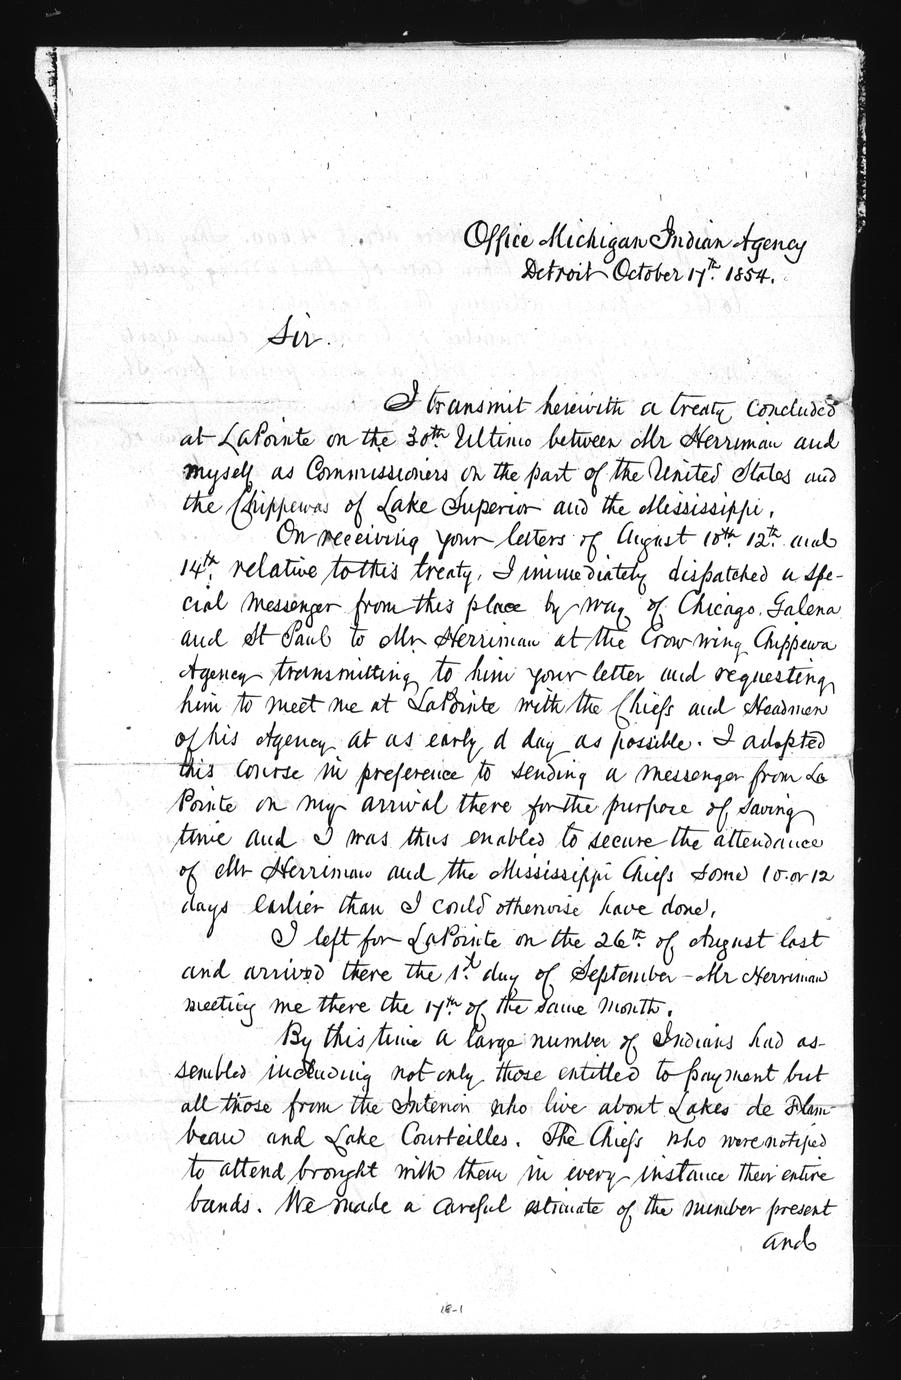 Office Michigan Indian Agency
Detroit October 17th 1854.
Sir.
I transmit herewith a treaty concluded
at LaPointe on the 30th Ultimo between Mr Herriman and
myself as Commissioners on the part of the United States and
the Chippewas of Lake Superior and the Mississippi.
On receiving your letters of August 10th 12th and
14th relative to this treaty, I immediately dispatched a spe-
cial messenger from this place by way of Chicago, Galena
and St Paul to Mr Herriman at the Crow wing Chippewa
Agency transmitting to him your letter and requesting
him to meet me at LaPointe with the Chiefs and Headmen
of his Agency at as early a day as possible. I adopted
this course in preference to sending a messenger from La
Pointe on my arrival there for the purpose of saving
time and I was thus enabled to secure the attendance
of Mr Herriman and the Mississippi Chiefs some 10 or 12
days earlier than I could otherwise have done.
I left for LaPointe on the 26th of August last
and arrived there the 1st day of September - Mr Herriman
meeting me there the 17th of the same month.
By this time a large number of Indians had as-
sembled including not only those entitled to payment but
all those from the Interior who live about Lakes de Flam-
beau and Lake Courteilles. The Chiefs who were notified
to attend brought with them in every instance their entire
bands. We made a careful estimate of the number present
and
18-1